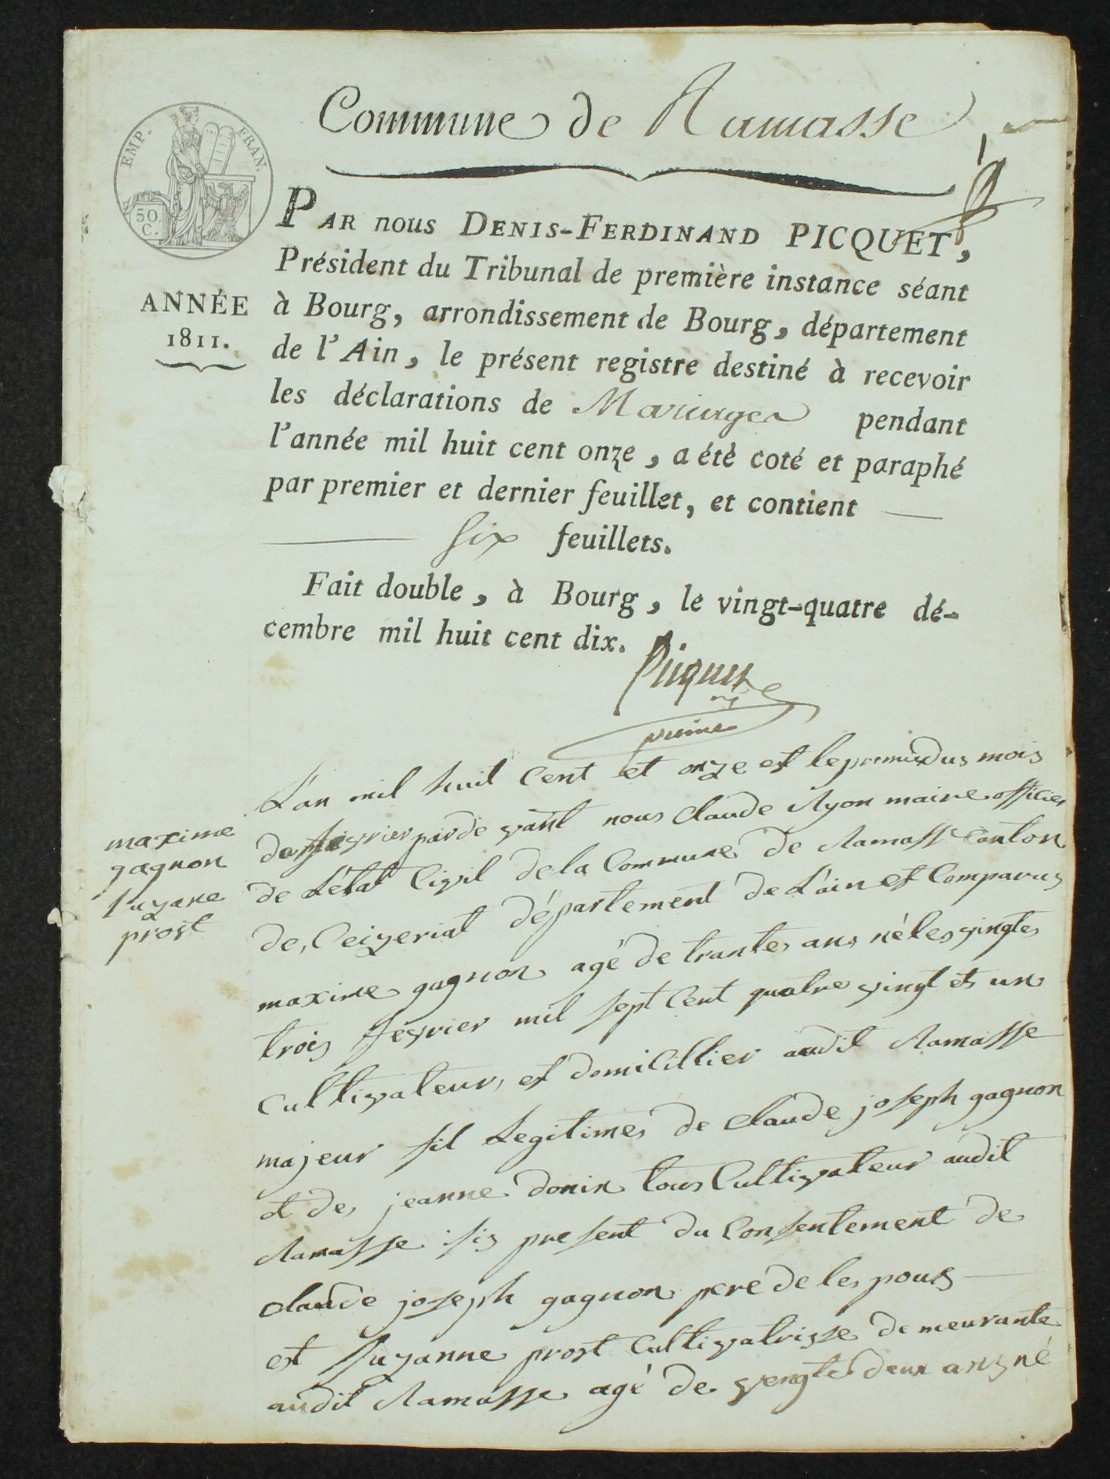 Commune de Ramasse
EMP. FRAN.
50.
C.
ANNÉE
1811.
PAR nous DENIS-FERDINAND PICQUET,
Président du Tribunal de première instance séant
à Bourg, arrondissement de Bourg, département
de l'Ain, le présent registre destiné à recevoir
les déclarations de Mariages pendant
l'année mil huit cent onze, a été coté et paraphé
par premier et dernier feuillet, et contient
six feuillets.
Fait double, à Bourg, le vingt-quatre dé-
cembre mil huit cent dix.
Picquet
maxime
gagnon
suzane
prost
L'an mil huit Cent et onze est le premier du mois
de fevrier par de vant nous Claude Ryon maire officier
de L'état Civil de la Commune de Ramasse Canton
de Ceizeriat département de L'ain est Comparus
maxime gagnon agé de trante ans né le vingte
trois fevrier mil sept Cent quatre vingt et un
Cultivateur, et domicillier audit Ramasse
majeur fil Legitime de Claude joseph gagnon
et de jeanne donin tous Cultivateur audit
Ramasse isi present du Consentement de
claude joseph gagnon pere de les pous
est suzanne prost Cultivatrisse demeurante
audit Ramasse agé de vengte deux ans né